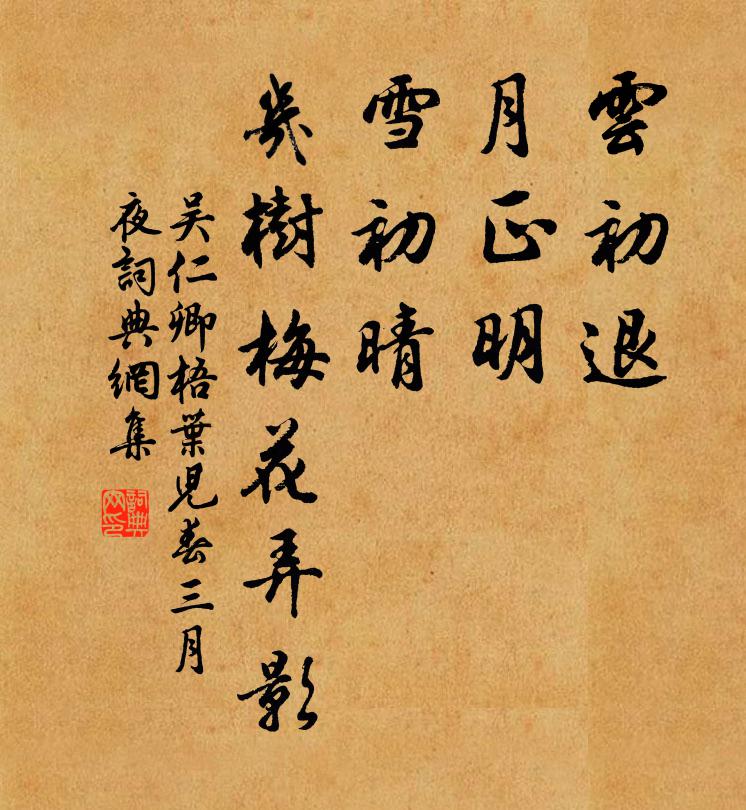 雲初退
月正明
雪初晴
幾樹梅花弄影
吴仁卿梧葉兒春三月
夜詞典網集
詞典
网印